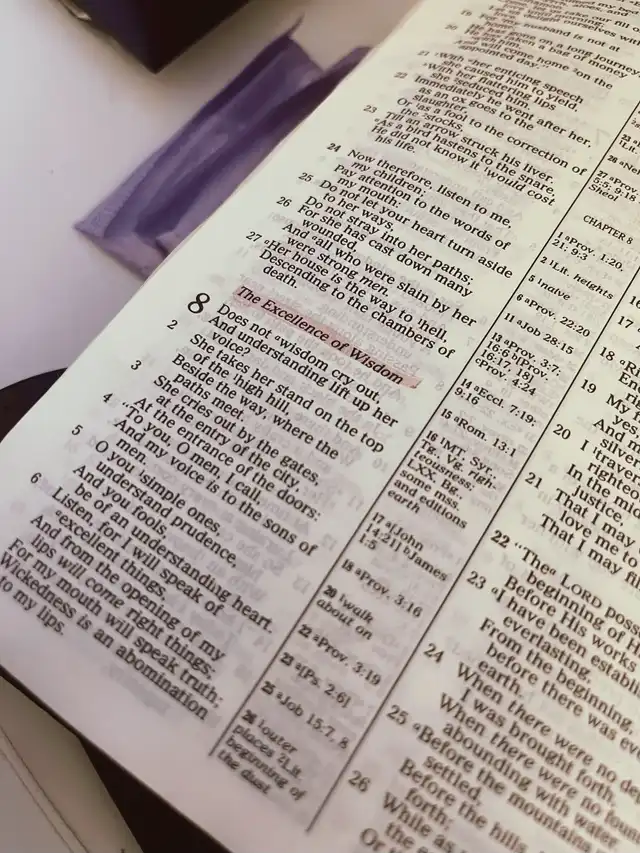 19
husband is not at
20
gone on a long journey
taken a bag of money
will come home on the
appointed day."
21 With her enticing speech
she caused him to yield,
With her flattering lips
she seduced him.
22 Immediately he went after her,
as an ox goes to the
slaughter,
Or as a fool to the correction of
the stocks,
23 Till an arrow struck his liver.
As a bird hastens to the snare,
He did not know it would cost
his life.
24 Now therefore, listen to me,
my children;
Pay attention to the words of
my mouth:
25 Do not let your heart turn aside
to her ways,
Do not stray into her paths;
26 For she has cast down many
wounded,
And all who were slain by her
were strong men.
27 Her house is the way to hell,
Descending to the chambers of
death.
The Excellence of Wisdom
8 Does not wisdom cry out,
And understanding lift up her
voice?
2 She takes her stand on the top
of the high hill,
Beside the way, where the
paths meet.
3 She cries out by the gates,
at the entry of the city,
At the entrance of the doors:
4 "To you, O men, I call,
And my voice is to the sons of
men.
5 O you simple ones,
understand prudence,
And you fools,
be of an understanding heart.
6 Listen, for I will speak of
excellent things,
And from the opening of my
lips will come right things;
For my mouth will speak truth;
Wickedness is an abomination
to my lips.
27 Prov.
5:5; 9:18
Sheol
CHAPTER 8
1 a Prov. 1:20,
21; 9:3
2 1 Lit. heights
5 1 naive
6 a Prov. 22:20
11 a Job 28:15
13 a Prov. 3:7;
16:6 b [Prov.
16:17, 18]
c Prov. 4:24
14 a Eccl. 7:19;
9:16
15 a Rom. 13:1
16 1 MT, Syr.,
Tg., Vg. righ-
teousness;
LXX, Bg.,
some mss.
and editions
earth
17 a [John
14:21] b James
1:5
18 a Prov. 3:16
20 1 walk
about on
22 a Prov. 3:19
23 a [Ps. 2:6]
25 a Job 15:7, 8
26 1 outer
places 2 Lit.
beginning of
the dust
17
18
19 My
yes
And
silver
20 I
righte
In the
justice,
21 That I may
love me to
That I may
22 "The LORD poss
beginning of H
Before His works
23 I have been establ
everlasting,
From the beginning,
before there was
earth.
24 When there were no de
I was brought forth,
When there were no foun
abounding with water.
25 Before the mountains
settled,
Before the hills,
forth;
26 While as
the
Or